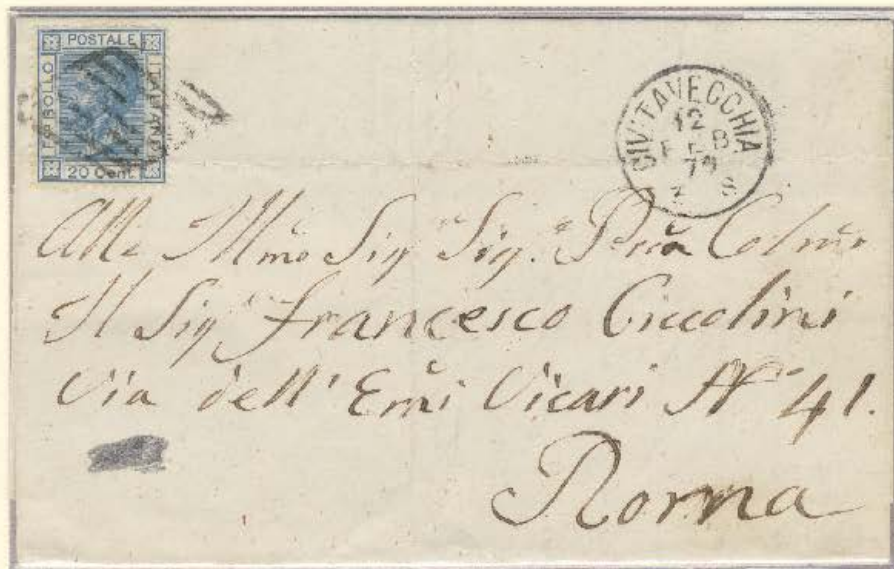 POSTALE
FCO BOLLO
ITALIANO
20 Cent.
CIVITAVECCHIA
12
FEB
Alla Illmo Sig Sig.
Il Sigr Francesco Ciccolini
Via dell' Emi Vicari No 41.
Roma